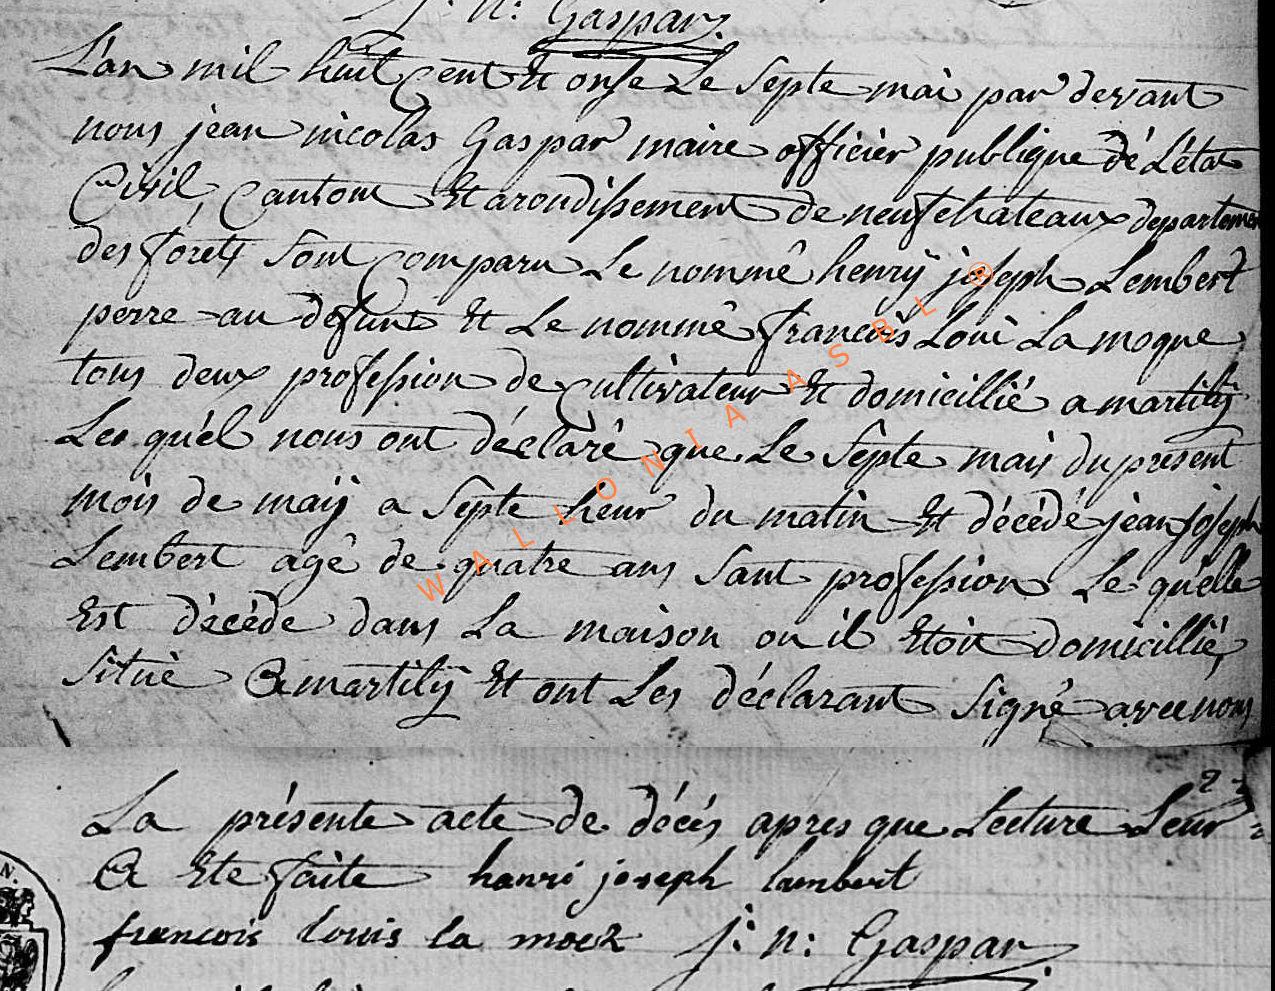 J. N: Gaspar.
L'an mil huit cent et onse Le septe mai par devant
nous jean nicolas Gaspar maire officier publique dé L'état
Civil, Canton et arondissement de neufchateaux departement
des foréts sont comparu Le nommé henrÿ joseph Lembert
perre au defunt et Le nommé francois Loui La moque
tous deux profession de cultivateur et domicillié a martilÿ
Les quél nous ont déclaré que Le septe mais du présent
mois de maÿ a septe heur du matin et décédé jean joseph
Lembert agé de quatre ans sant profession Le quélle
est décéde dans La maison ou il étoit domicillié,
situé a martilÿ et ont Les déclarant signé avec nous
2
La présente acte de décés apres que Lecture Leur
a ete faite henri joseph lambert
francois louis la mock J: N: Gaspar
WALLONIA ASBL ®
N.